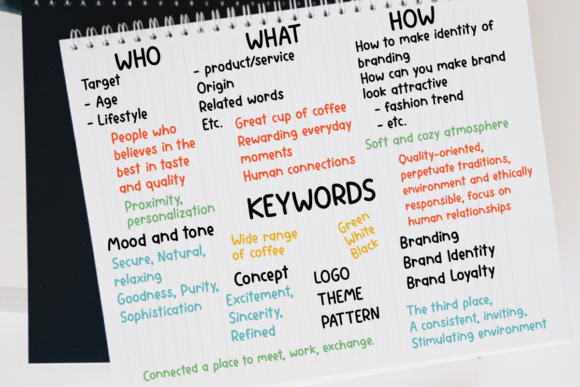 WHO
Target
- Age
- Lifestyle
People who
believes in the
best in taste
and quality
Proximity,
personalization
Mood and tone
Secure, Natural,
relaxing
Goodness, Purity,
Sophistication
WHAT
- product/service
Origin
Related words
Etc.
Great cup of coffee
Rewarding everyday
moments
Human connections
KEYWORDS
Wide range
of coffee
Green
White
Black
Concept
Excitement,
Sincerity,
Refined
LOGO
THEME
PATTERN
HOW
How to make identity of
branding
How can you make brand
look attractive
- fashion trend
- etc.
Soft and cozy atmosphere
Quality-oriented,
perpetuate traditions,
environment and ethically
responsible, focus on
human relationships
Branding
Brand Identity
Brand Loyalty
The third place,
A consistent, inviting,
Stimulating environment
Connected a place to meet, work, exchange.